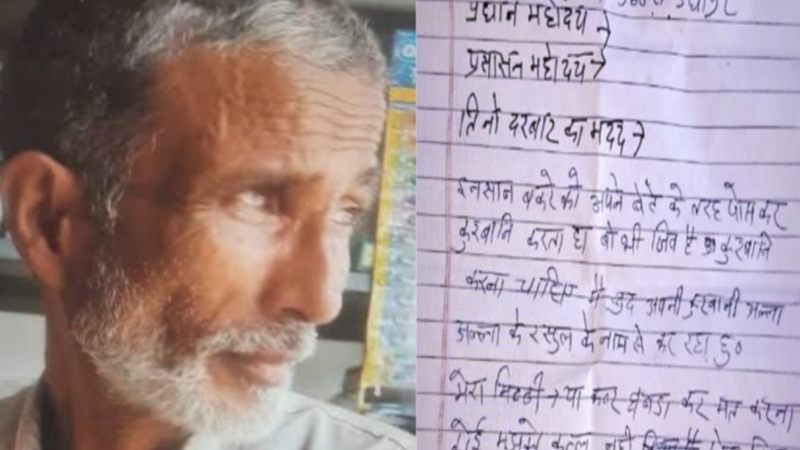 प्रधान महोदय →
प्रसासन महोदय →
तिनो दरबार का मदद →
इनसान बकरे को अपने बेटे के तरह पोस कर
कुरबानि करता है वो भी जिव है कुरबानि
करना चाहिए मै खुद अपनी कुरबानी अल्ला
अल्ला के रसुल के नाम से कर रहा हु०
मेरा मिटटी → या कबर घबड़ा कर मत करना
कोई मुझको कत्ल नही किया है